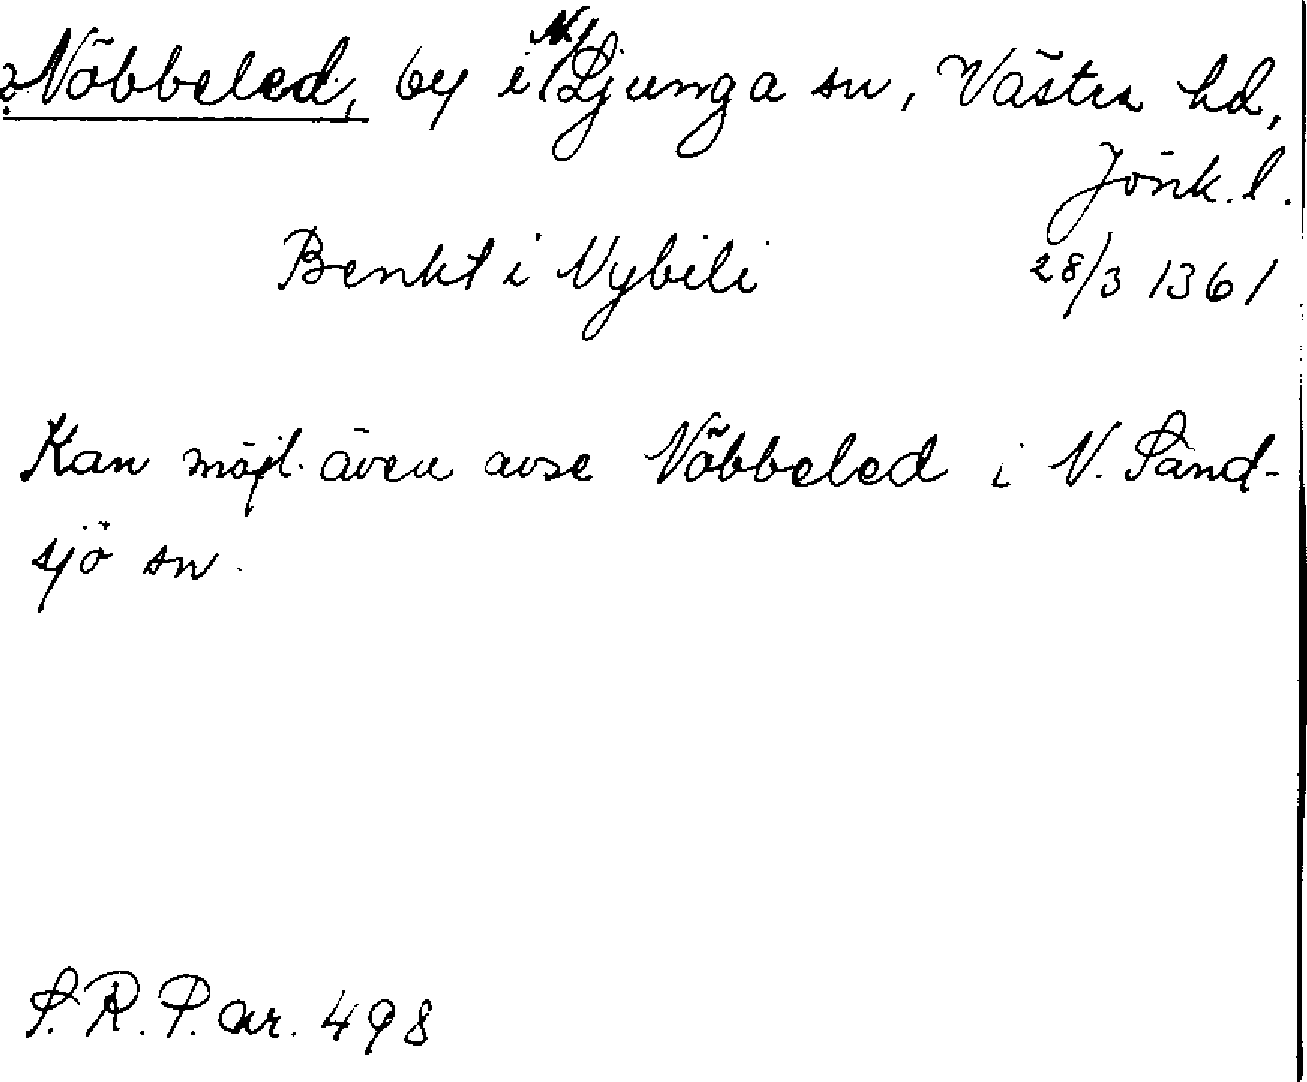 ? Nöbbeled, by i N. Ljunga sn, Västra hd,
Jönk. l.
Benkt i Nybili 28/3 1361
Kan möjl. även avse Nöbbeled i N. Sand-
sjö sn.
S. R. P. nr. 498